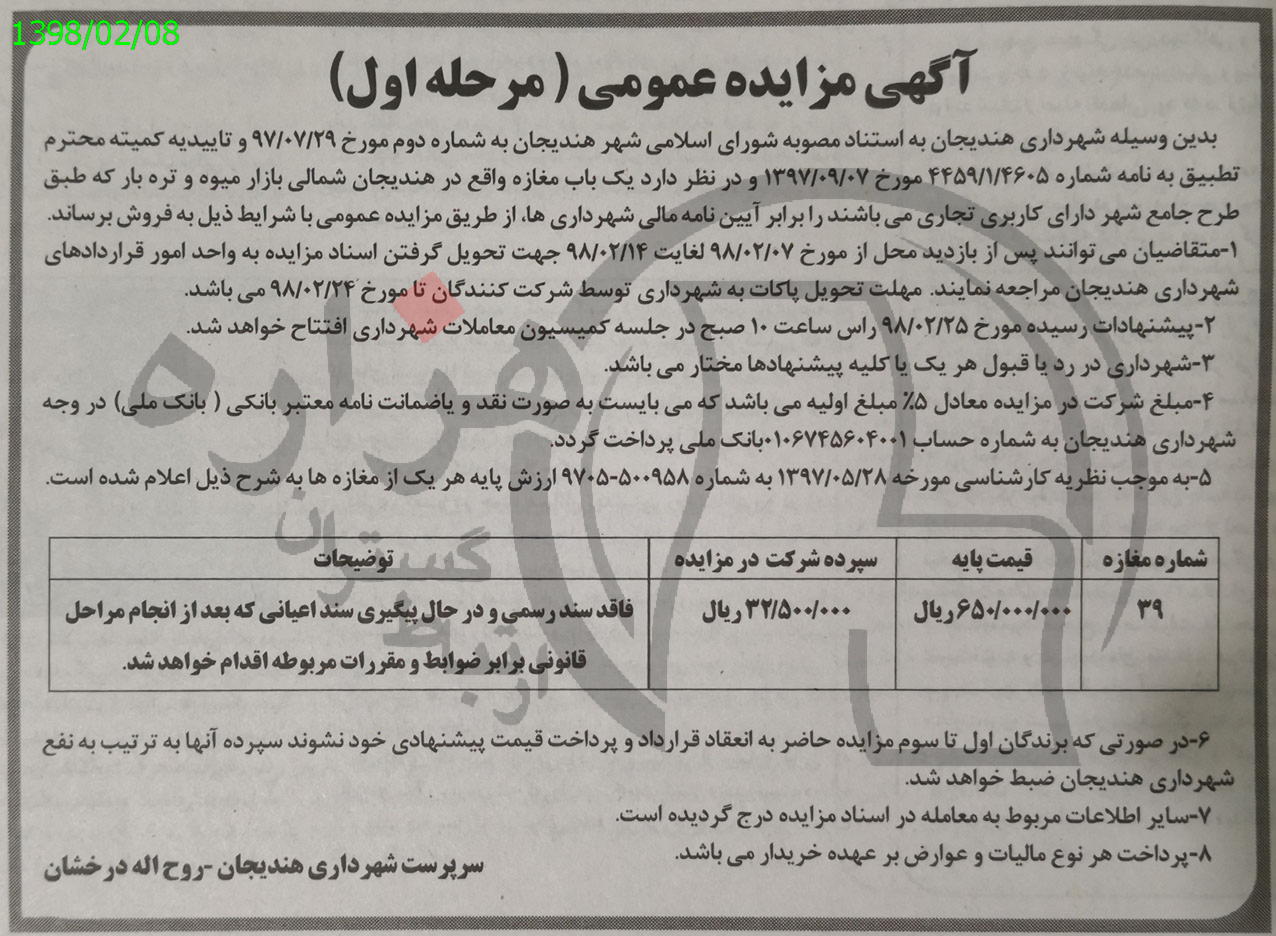 1398/02/08
آگهی مزایده عمومی ( مرحله اول)
بدین وسیله شهرداری هندیجان به استناد مصوبه شورای اسلامی شهر هندیجان به شماره دوم مورخ ۹۷/۰۷/۲۹ و تاییدیه کمیته محترم
تطبیق به نامه شماره ۴۴۵۹/۱/۴۶۰۵ مورخ ۱۳۹۷/۰۹/۰۷ و در نظر دارد یک باب مغازه واقع در هندیجان شمالی بازار میوه و تره بار که طبق
طرح جامع شهر دارای کاربری تجاری می باشند را برابر آیین نامه مالی شهرداری ها، از طریق مزایده عمومی با شرایط ذیل به فروش برساند.
۱-متقاضیان می توانند پس از بازدید محل از مورخ ۹۸/۰۲/۰۷ لغایت ۹۸/۰۲/۱۴ جهت تحویل گرفتن اسناد مزایده به واحد امور قراردادهای
شهرداری هندیجان مراجعه نمایند. مهلت تحویل پاکات به شهرداری توسط شرکت کنندگان تا مورخ ۹۸/۰۲/۲۴ می باشد.
۲-پیشنهادات رسیده مورخ ۹۸/۰۲/۲۵ راس ساعت ۱۰ صبح در جلسه کمیسیون معاملات شهرداری افتتاح خواهد شد.
۳-شهرداری در رد یا قبول هر یک یا کلیه پیشنهادها مختار می باشد.
۴-مبلغ شرکت در مزایده معادل ۵٪ مبلغ اولیه می باشد که می بایست به صورت نقد و یاضمانت نامه معتبر بانکی ( بانک ملی) در وجه
شهرداری هندیجان به شماره حساب ۰۱۰۶۷۴۵۶۰۴۰۰۱بانک ملی پرداخت گردد.
۵-به موجب نظریه کارشناسی مورخه ۱۳۹۷/۰۵/۲۸ به شماره ۵۰۰۹۵۸-۹۷۰۵ ارزش پایه هر یک از مغازه ها به شرح ذیل اعلام شده است.
شماره مغازه قیمت پایه سپرده شرکت در مزایده توضیحات
۳۹ ۶۵۰/۰۰۰/۰۰۰ ریال ۳۲/۵۰۰/۰۰۰ ریال فاقد سند رسمی و در حال پیگیری سند اعیانی که بعد از انجام مراحل
قانونی برابر ضوابط و مقررات مربوطه اقدام خواهد شد.
۶-در صورتی که برندگان اول تا سوم مزایده حاضر به انعقاد قرارداد و پرداخت قیمت پیشنهادی خود نشوند سپرده آنها به ترتیب به نفع
شهرداری هندیجان ضبط خواهد شد.
۷-سایر اطلاعات مربوط به معامله در اسناد مزایده درج گردیده است.
۸-پرداخت هر نوع مالیات و عوارض بر عهده خریدار می باشد.
سرپرست شهرداری هندیجان -روح اله درخشان
هزاره
گستران
ارتباط